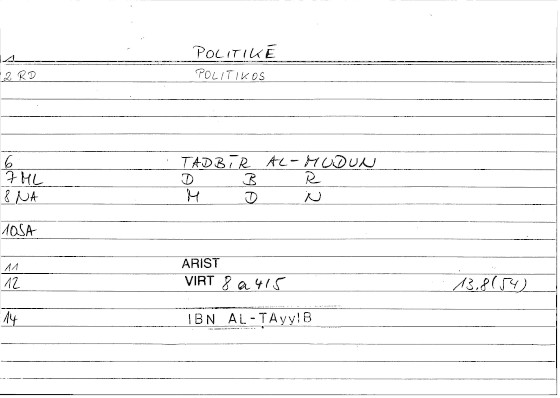 1 POLITIKĒ
2 RD POLITIKOS
6 TADBĪR AL-MUDUN
7 ML D B R
8 NA M D N
10SA
11 ARIST
12 VIRT 8 a 4/5 13.8(54)
14 IBN AL-ṬAyyIB